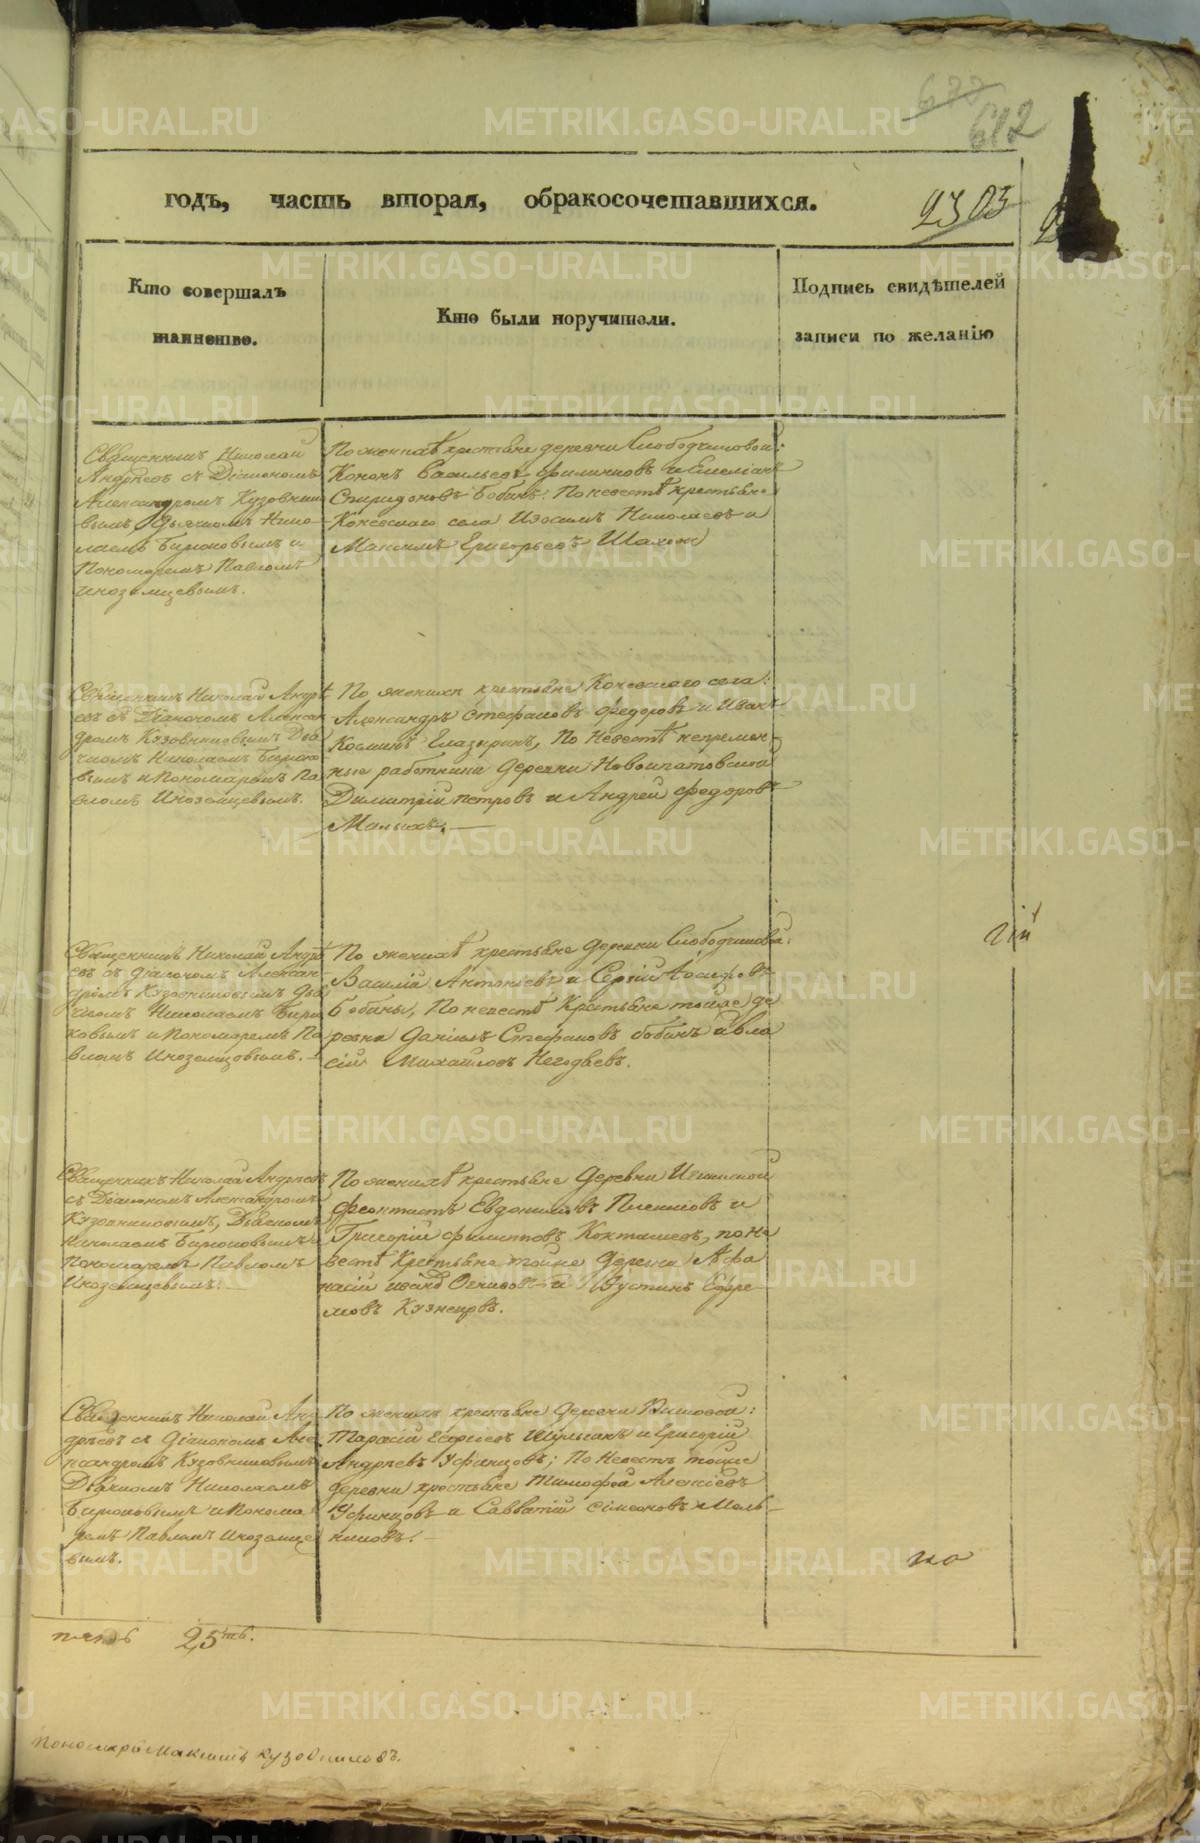 612
годъ, часть вторая, обракосочетавшихся.
2303
Кто совершалъ
таинство.
Кто были поручители.
Подпись свидѣтелей
записи по желанію
Священникъ Николай
Андрѣевъ съ Діакономъ
Александромъ Кузовни
вымъ Дьячкомъ Нико
лаемъ и
Пономаремъ Павломъ
Иноземцевымъ.
По женихѣ крестьяне деревни Слободчиковой:
Кононъ Васильевъ Филипповъ и Емеліанъ
Спиридоновъ Бобинъ. По невестѣ крестьяне
Коневскаго села Николаевъ и
Максимъ Григорьевъ
Священникъ Николай Андрѣ
евъ съ Діакономъ Алексан
дромъ Кузовниковымъ Дьа
чкомъ Николаемъ
вымъ и Пономаремъ Па
вломъ Иноземцевымъ.
По женихѣ крестьяне Коневскаго села:
Александръ Стефановъ Федоровъ и Иванъ
Косминъ Глазыринъ, По Невестѣ непремен
ные работники деревни Новоипатовской
Димитрій Петровъ и Андрей Федоровъ
Малыхъ.
Священникъ Николай Андрѣ
евъ съ Діакономъ Алексан
дромъ Кузовниковымъ Дьа
чкомъ Николаемъ
ковымъ и Пономаремъ Па
вломъ Иноземцовымъ.
По женихѣ крестьяне деревни Слободчиковой:
Василій Антоньевъ и Сергій Іосифовъ
Бобины, По невестѣ Крестьяне тойже де
ревни Даніилъ Стефановъ Бобинъ и Вла
сій Михайловъ Негодяевъ.
Священникъ Николай Андрѣевъ
съ Діакономъ Александромъ
Кузовниковымъ, Дьячкомъ
Николаемъ
Пономаремъ Павломъ
Иноземцевымъ.
По женихѣ крестьяне деревни
Феоктистъ Евдокимовъ и
Григорій Филиповъ, по Не
вестѣ Крестьяне тойже деревни Афа
насій и Іустинъ Ефре
мовъ Кузнецовъ.
Священникъ Николай Ан
дрѣевъ съ Діакономъ Але
ксандромъ Кузовниковымъ
Дьячкомъ Николаемъ
и Понома
ремъ Павломъ Иноземце
вымъ.
По женихѣ крестьяне деревни
Тарасій и Григорій
Андрѣевъ Уфинцовъ; По Невестѣ тойже
деревни крестьяне Тимофей Алексіевъ
Уфинцовъ и Савватій Симеоновъ Мель
никовъ.
25
Пономарь Максимъ Кузовниковъ.
METRIKI.GASO-URAL.RU